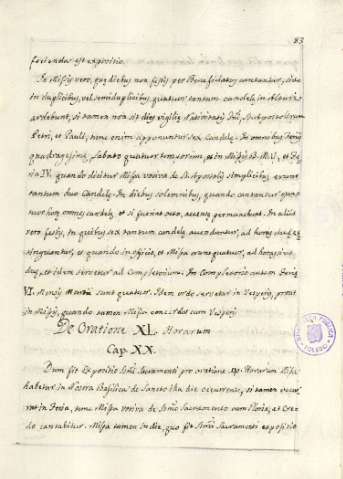 83
facienda est expositio.
In Missis vero, quæ diebus non festis per Beneficiatos cantantur, sive
in duplicibus, vel semiduplicibus, quatuor tantum candelæ in Altari
ardebunt, si tamen non sit dies vigiliæ Nativitatis Dñi, Apostolorum
Petri, et Pauli, tunc enim apponuntur sex Candelæ. In omnibus
quadragesimæ Sabato quatuor et in Missis B. M. V., et Fe
ria IV. quando dicitur Missa votiva de Apostolis simplicibus, erunt
tantum duo Candelæ. In diebus solemnibus, quando cantantur
omnes candelæ, et si accensæ permanebunt. In aliis
vero festis, in quibus sex tantum candelæ accenduntur, ad horas
tinguantur, et quando in officio, et Missa erunt quatuor, ad horas
duæ, et idem servetur ad Completorium. In Completorio autem Feriæ
VI. Mensis Martii sunt quatuor. Idem ordo servetur in Vesperis, prout
in Missis, quando tamen Missa concordat cum Vesperis
De Oratione XL. Horarum
Cap. XX.
Dum fit Expositio Smi. Sacramenti pro oratione 40. Horarum
habetur in Nostra Basilica de Sancto illa die occurrente, si tamen occur
rat in Feria, tunc Missa votiva de Smo Sacramento cum Gloria, et Cre
do cantabitur. Missa tamen in die, quo fit Smi Sacramenti expositio
TOLEDO